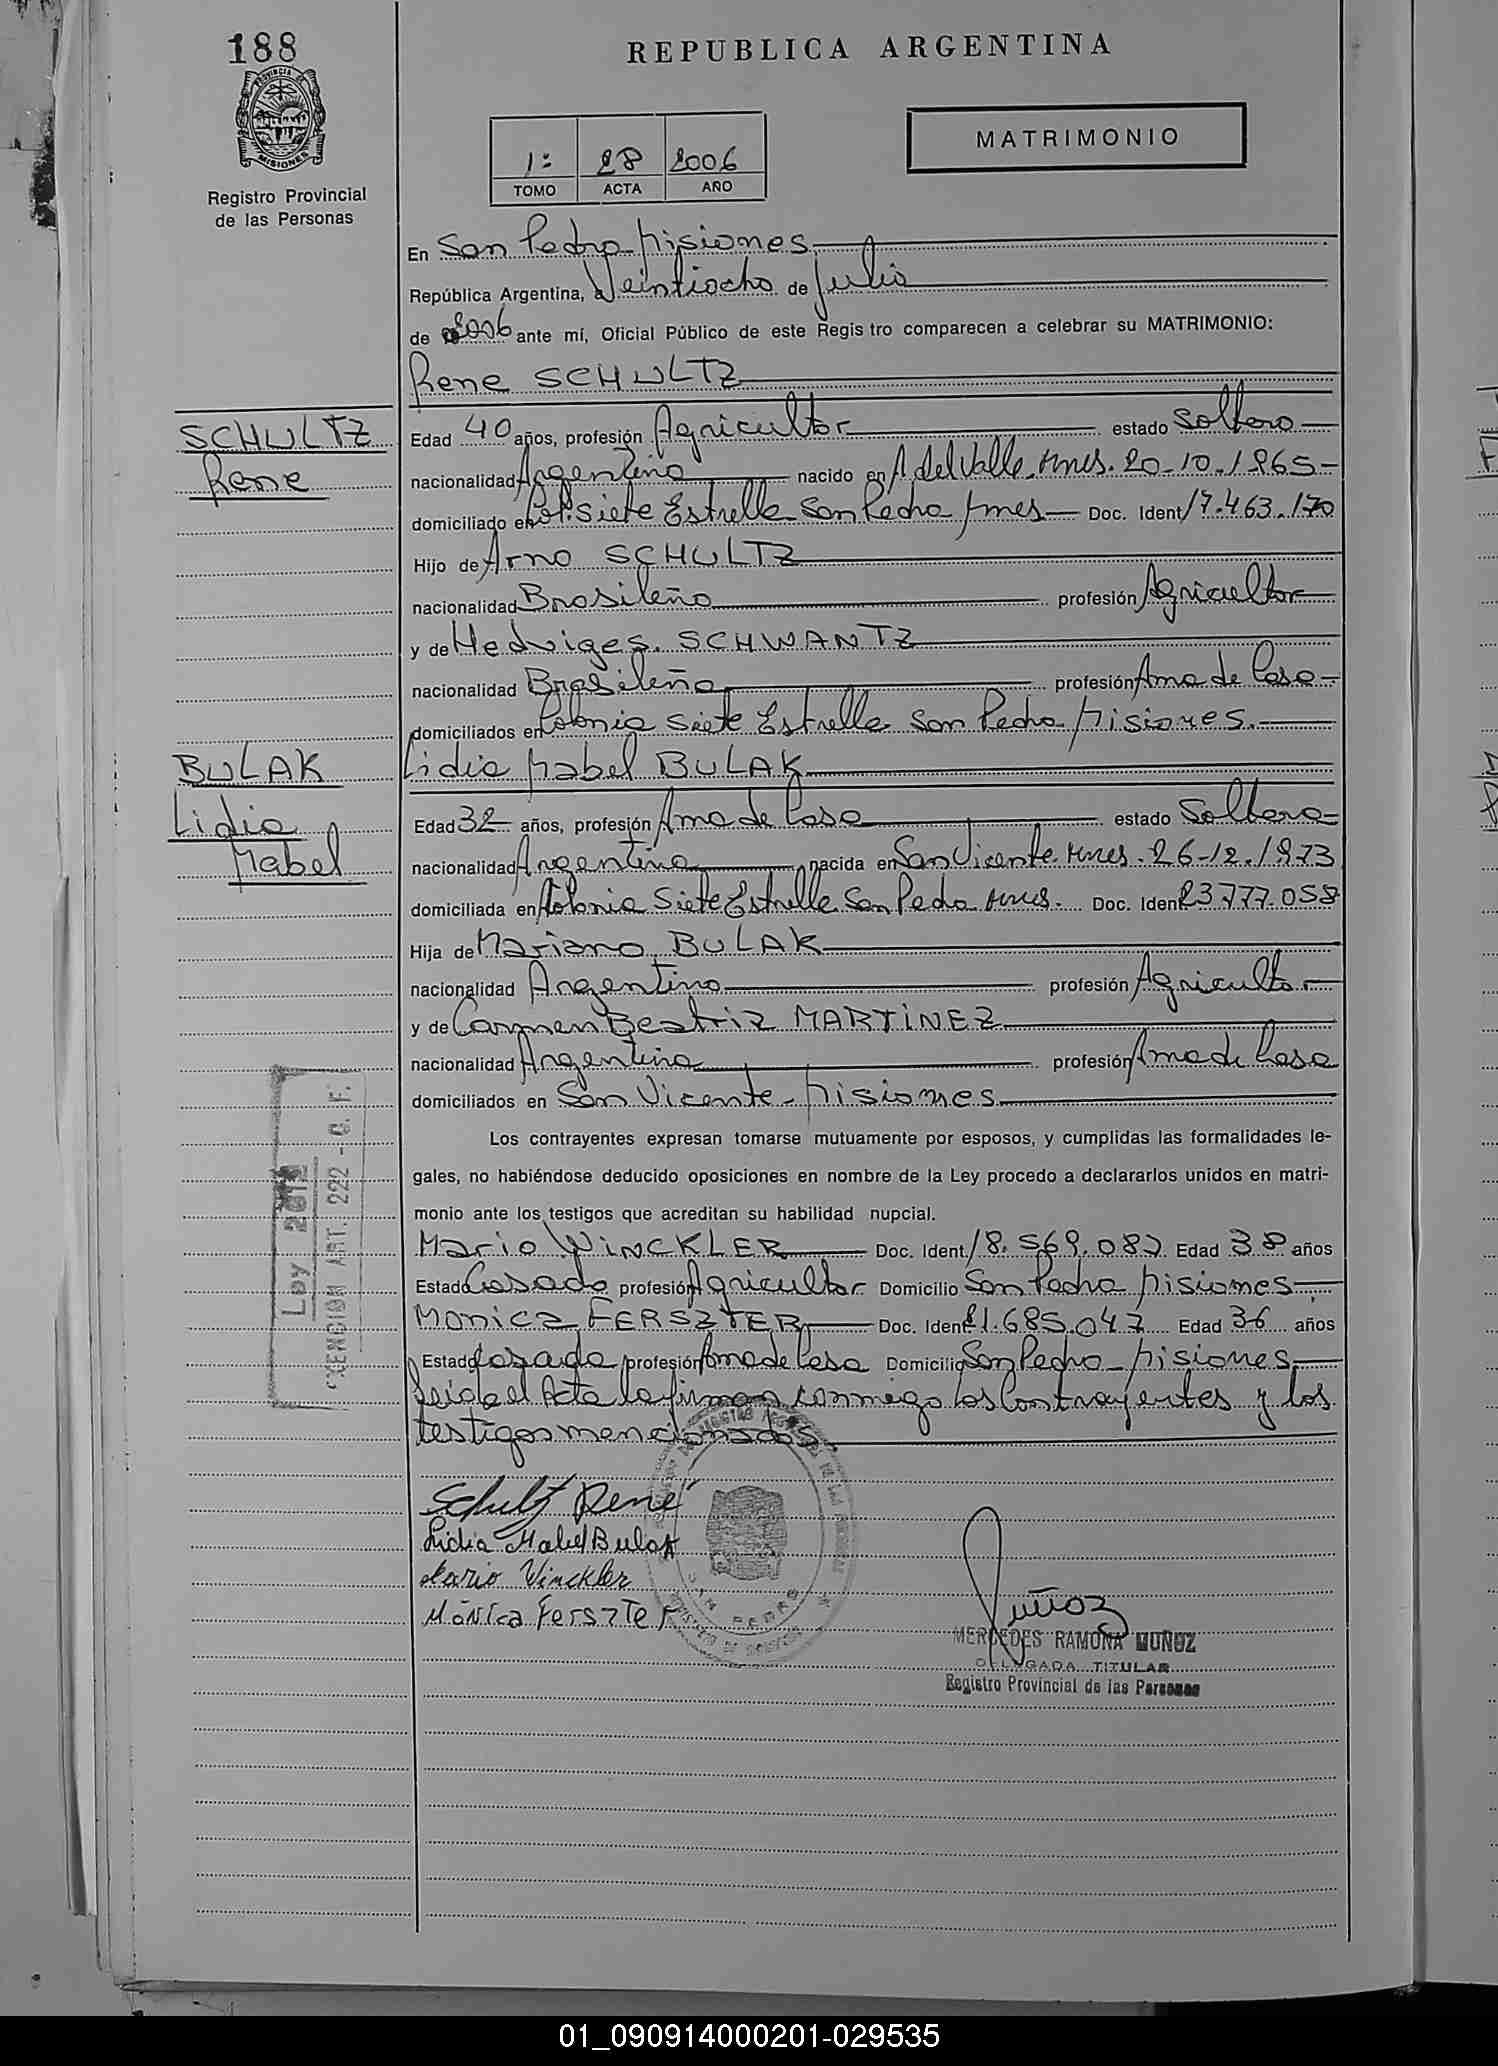 188
REPUBLICA ARGENTINA
PROVINCIA DE
MISIONES
Registro Provincial
de las Personas
MATRIMONIO
1º 28 2006
TOMO ACTA AÑO
En San Pedro Misiones
República Argentina, a Veintiocho de Julio
de 2006 ante mí, Oficial Público de este Registro comparecen a celebrar su MATRIMONIO:
Rene SCHULTZ
SCHULTZ
Rene
Edad 40 años, profesión Agricultor estado Soltero
nacionalidad Argentino nacido en A del Valle Mnes. 20-10-1965
domiciliado en Col. Siete Estrella San Pedro Mnes Doc. Ident 17.463.170
Hijo de Arno SCHULTZ
nacionalidad Brasileño profesión Agricultor
y de Hedviges. SCHWANTZ
nacionalidad Brasileña profesión Ama de Casa
domiciliados en Colonia Siete Estrella San Pedro Misiones.
BULAK
Lidia
Mabel
Lidia Mabel BULAK
Edad 32 años, profesión Ama de Casa estado Soltera
nacionalidad Argentina nacida en San Vicente Mnes. 26-12-1973
domiciliada en Colonia Siete Estrella San Pedro Mnes. Doc. Ident 23.777.058
Hija de Mariano BULAK
nacionalidad Argentino profesión Agricultor
y de Carmen Beatriz MARTINEZ
nacionalidad Argentina profesión Ama de Casa
domiciliados en San Vicente - Misiones
Los contrayentes expresan tomarse mutuamente por esposos, y cumplidas las formalidades le-
gales, no habiéndose deducido oposiciones en nombre de la Ley procedo a declararlos unidos en matri-
monio ante los testigos que acreditan su habilidad nupcial.
Mario WINCKLER Doc. Ident 18.569.082 Edad 38 años
Estado Casado profesión Agricultor Domicilio San Pedro Misiones
Monica FERSZTER Doc. Ident 21.685.047 Edad 36 años
Estado Casada profesión Ama de Casa Domicilio San Pedro - Misiones
Leida el Acta la firman conmigo los Contrayentes y los
testigos mencionados.
Ley
ART. 222 - C. F.
Schultz René
Lidia Mabel Bulak
Mario Winckler
Mónica Ferszter
SAN PEDRO
Muñoz
MERCEDES RAMONA MUÑOZ
DELEGADA TITULAR
Registro Provincial de las Personas
01_090914000201-029535